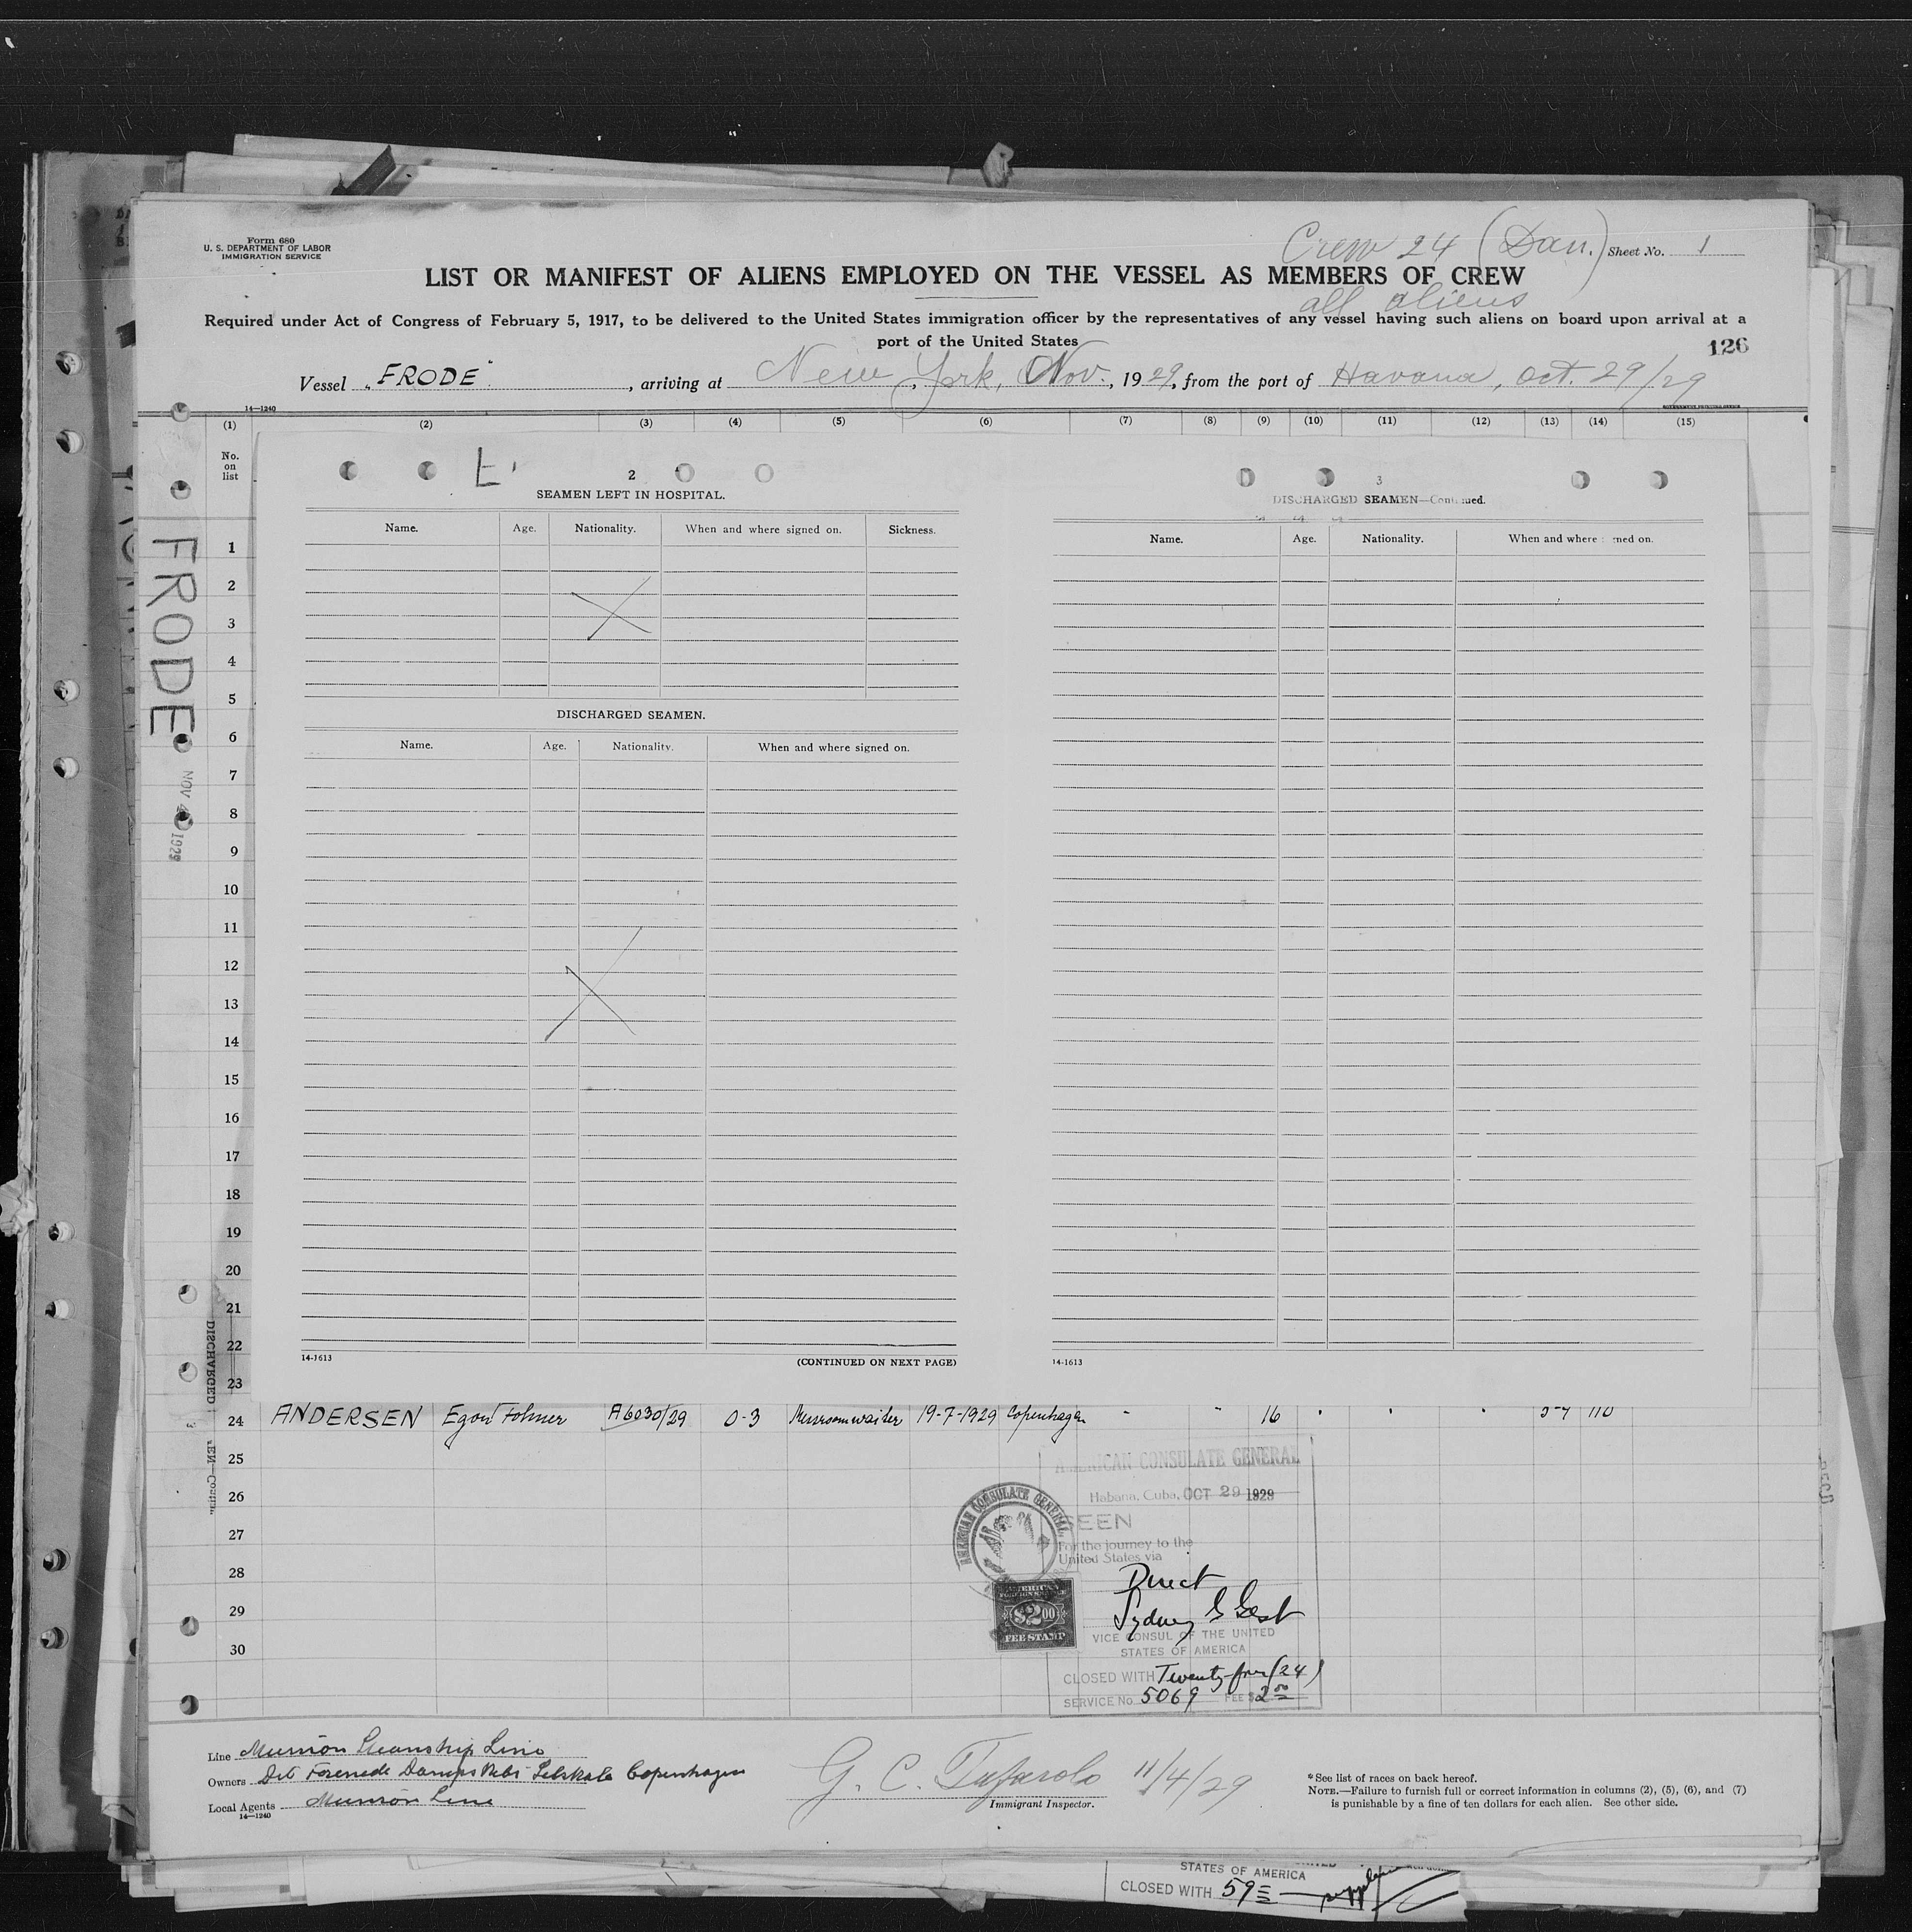 Form 680
U. S. DEPARTMENT OF LABOR
IMMIGRATION SERVICE
Crew 24 (Dan.)
Sheet No. 1
LIST OR MANIFEST OF ALIENS EMPLOYED ON THE VESSEL AS MEMBERS OF CREW
all aliens
Required under Act of Congress of February 5, 1917, to be delivered to the United States immigration officer by the representatives of any vessel having such aliens on board upon arrival at a
port of the United States
126
Vessel "FRODE", arriving at New York, Nov., 1929, from the port of Havana, Oct. 29/29
14—1240
GOVERNMENT PRINTING OFFICE
(1) (2) (3) (4) (5) (6) (7) (8) (9) (10) (11) (12) (13) (14) (15)
No. on list
FRODE
NOV 4 1929
2
SEAMEN LEFT IN HOSPITAL.
Name. Age. Nationality. When and where signed on. Sickness.
DISCHARGED SEAMEN.
Name. Age. Nationality. When and where signed on.
14-1613
(CONTINUED ON NEXT PAGE)
3
DISCHARGED SEAMEN—Continued.
Name. Age. Nationality. When and where signed on.
14-1613
1
2
3
4
5
6
7
8
9
10
11
12
13
14
15
16
17
18
19
20
21
22
23
24 ANDERSEN Egon A6030/29 0-3 Messroomwaiter 19-7-1929 Copenhagen " " 16 " " " 5-7 110
25
26
27
28
29
30
DISCHARGED
AMERICAN CONSULATE GENERAL
Habana, Cuba, OCT 29 1929
SEEN
For the journey to the
United States via
Direct
Sydney G Gest
VICE CONSUL OF THE UNITED
STATES OF AMERICA
CLOSED WITH Twenty-four (24)
SERVICE No. 5069 FEE $2.00
AMERICAN CONSULATE GENERAL
AMERICAN
FOREIGN SERVICE
$2.00
FEE STAMP
Line Munson Steamship Line
Owners Det Forenede Dampskibs Selskab Copenhagen
Local Agents Munson Line
14—1240
G. C. Tufarolo 11/4/29
Immigrant Inspector.
*See list of races on back hereof.
NOTE.—Failure to furnish full or correct information in columns (2), (5), (6), and (7)
is punishable by a fine of ten dollars for each alien. See other side.
STATES OF AMERICA
CLOSED WITH 59